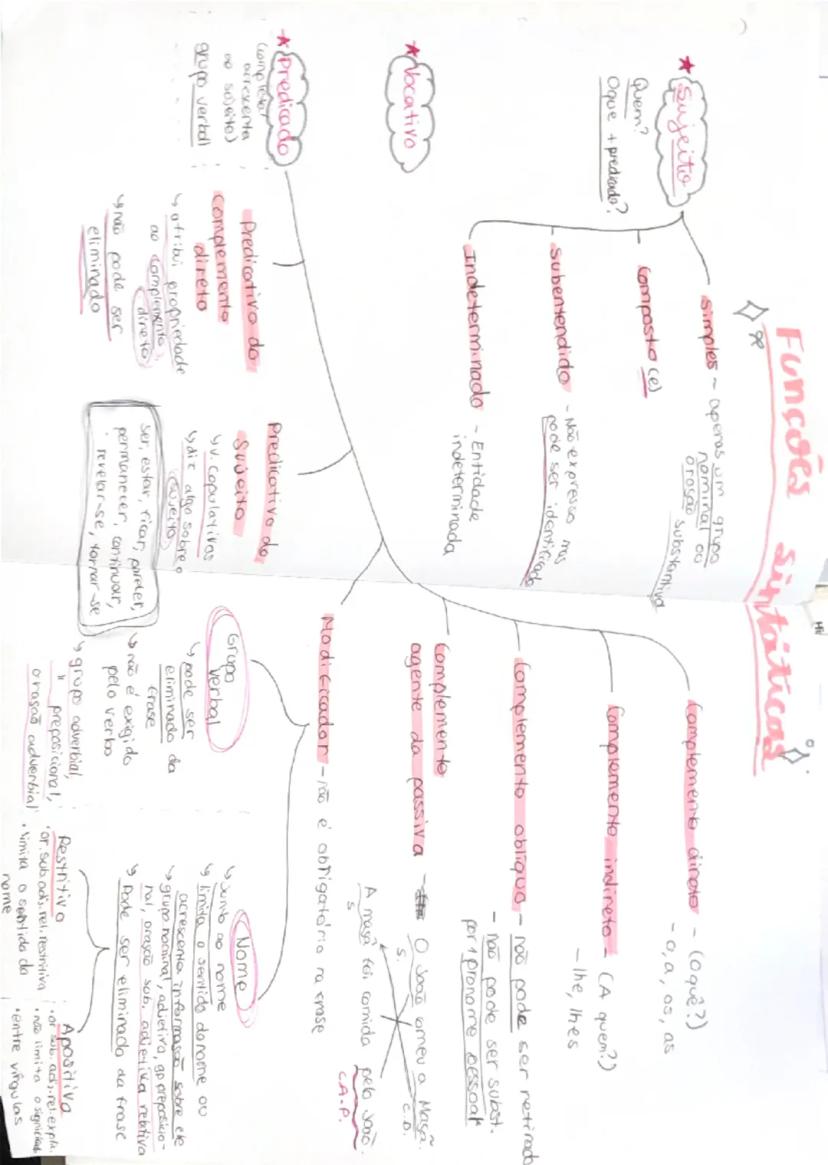 Funções sintáticas
Sujeito
Quem?
O que + predicado?
simples - apenas um grupo
nominal ou
oração substantiva
composto (e)
Subentendido - Não expresso mas
pode ser identificado
Indeterminado - Entidade
indeterminada
Vocativo
Predicado
(completa/
acrescenta
ao sujeito)
grupo verbal
Complemento direto - (O quê?)
- o, a, os, as
Complemento indireto - (A quem?)
- lhe, lhes
Complemento oblíquo - não pode ser retirado
- não pode ser subst.
por 1 pronome pessoal
Complemento
agente da passiva - O João comeu a Maçã.
S.
C.D.
A maçã foi comida pelo João.
S
C.A.P.
Modificador - não é obrigatório na frase
Grupo
verbal
↳ pode ser
eliminado da
frase
↳ não é exigido
pelo verbo
↳ grupo adverbial,
" preposicional,
oração adverbial
Nome
↳ Junto ao nome
↳ limita o sentido do nome ou
acrescenta informação sobre ele
↳ grupo nominal, adjetival, gp preposicio-
nal, oração sub. adjetiva relativa
↳ Pode ser eliminado da frase
Restritivo
• or. sub. adj. rel. restritiva
• limita o sentido do
nome
Apositivo
• or sub. adj. rel. expli.
• não limita o significado
• entre vírgulas
Predicativo do
Sujeito
↳ v. copulativos
↳ diz algo sobre o
sujeito
ser, estar, ficar, parecer,
permanecer, continuar,
revelar-se, tornar-se
Predicativo do
Complemento
direto
↳ atribui propriedade
ao complemento
direto
↳ não pode ser
eliminado